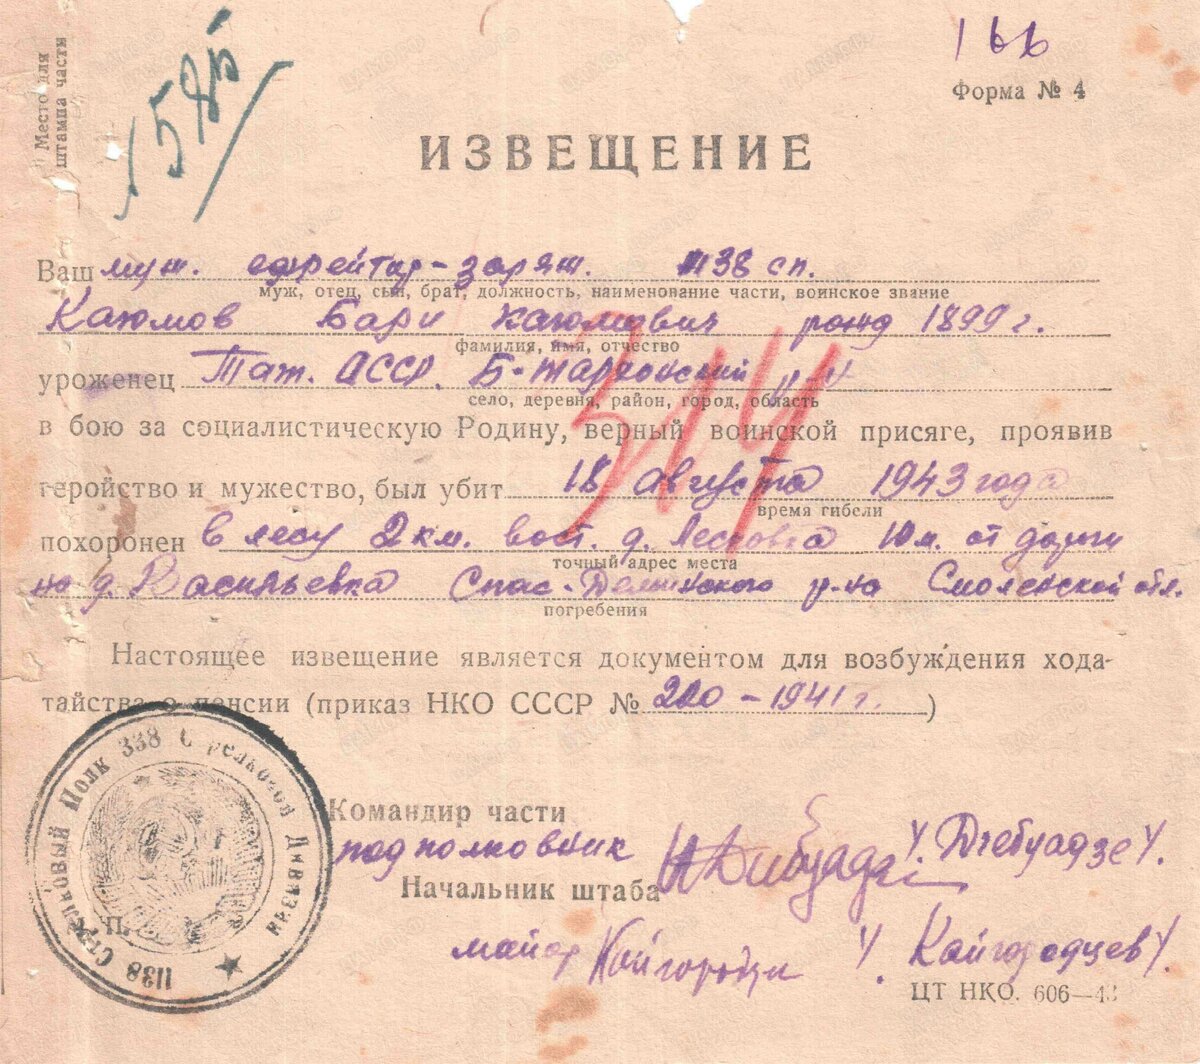 166
Форма № 4
Место для
штампа части
ИЗВЕЩЕНИЕ
Ваш муж. ефрейтор-заряж. 1138 сп.
муж, отец, сын, брат, должность, наименование части, воинское звание
Каюмов Бари Каюмович рожд 1899 г.
фамилия, имя, отчество
уроженец Тат. АССР. Б-Тархонский р-н
село, деревня, район, город, область
в бою за социалистическую Родину, верный воинской присяге, проявив
геройство и мужество, был убит 18 августа 1943 года
время гибели
похоронен в лесу 2 км. вост. д. Лесковка 10 м. от дороги
точный адрес места
на д. Васильевка Спас-Деменского р-на Смоленской обл.
погребения
Настоящее извещение является документом для возбуждения хода-
тайства о пенсии (приказ НКО СССР № 220 - 1941 г. )
Командир части
подполковник /Джебуадзе/.
Начальник штаба
майор Кайгородцев /Кайгородцев/.
ЦТ НКО. 606—43
1138 Стрелковый Полк 338 Стрелковой Дивизии
314